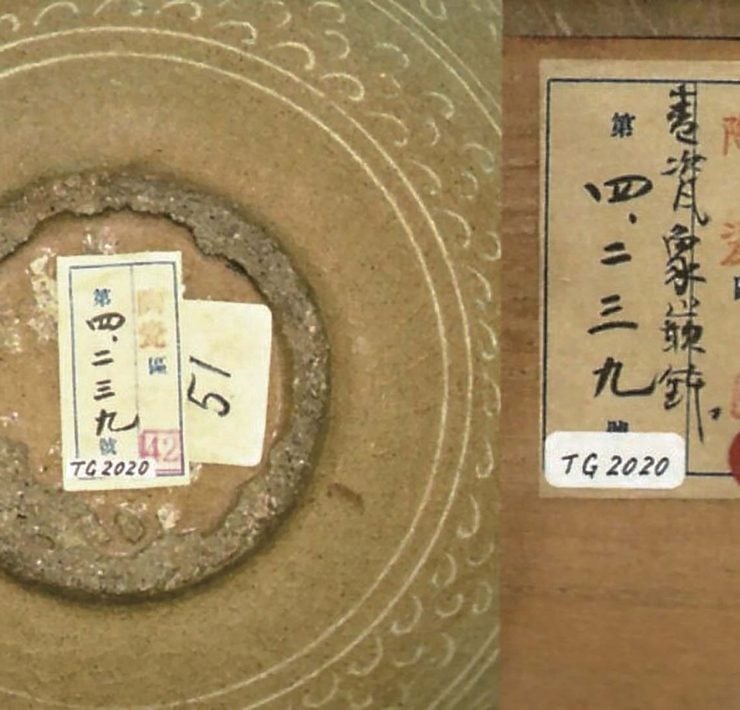 第
四.二三九
號
陶瓷
區
42
TG2020
51
第
四.二三九
青瓷象嵌鉢。
陶
瓷
TG2020